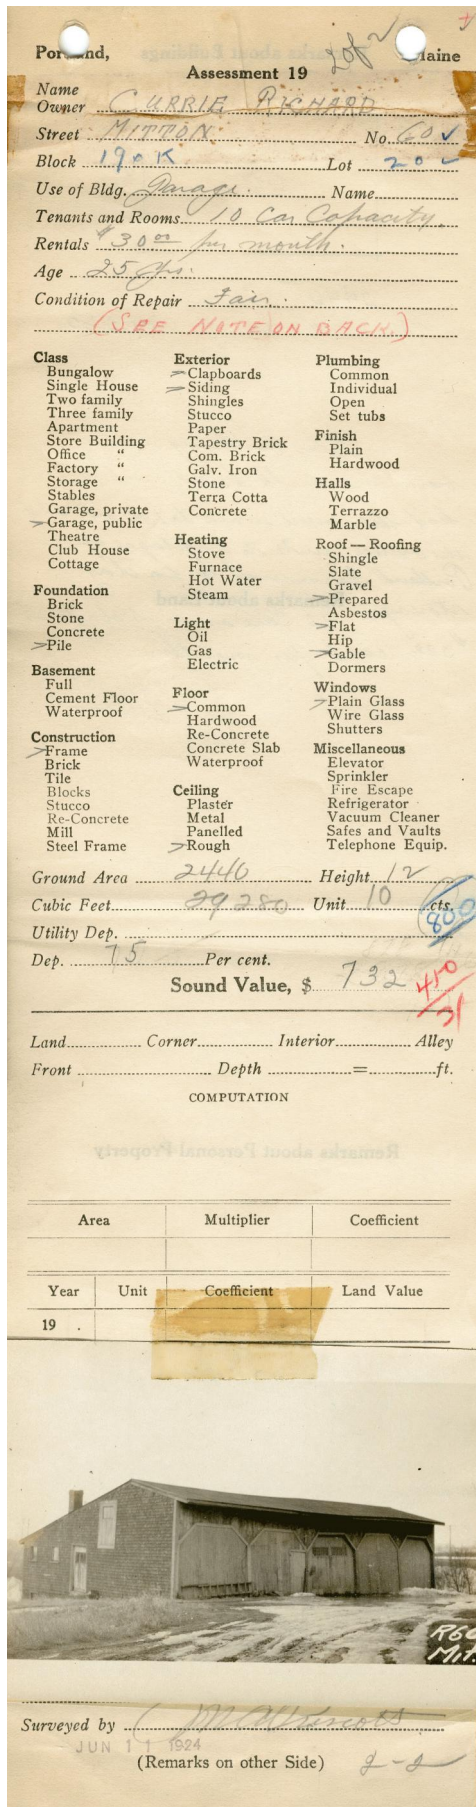 Portland, Maine
2 of 2
Assessment 19
Name
Owner CURRIE RICHARD
Street MITTON No. 60 ✓
Block 190 K Lot 20 ✓
Use of Bldg. Garage. Name
Tenants and Rooms 10 Car Capacity.
Rentals $30 00 per month.
Age 25 yrs.
Condition of Repair Fair.
(SEE NOTE ON BACK.)
Class
Bungalow
Single House
Two family
Three family
Apartment
Store Building
Office "
Factory "
Storage "
Stables
Garage, private
>Garage, public
Theatre
Club House
Cottage
Foundation
Brick
Stone
Concrete
>Pile
Basement
Full
Cement Floor
Waterproof
Construction
>Frame
Brick
Tile
Blocks
Stucco
Re-Concrete
Mill
Steel Frame
Exterior
>Clapboards
>Siding
Shingles
Stucco
Paper
Tapestry Brick
Com. Brick
Galv. Iron
Stone
Terra Cotta
Concrete
Heating
Stove
Furnace
Hot Water
Steam
Light
Oil
Gas
Electric
Floor
>Common
Hardwood
Re-Concrete
Concrete Slab
Waterproof
Ceiling
Plaster
Metal
Panelled
>Rough
Plumbing
Common
Individual
Open
Set tubs
Finish
Plain
Hardwood
Halls
Wood
Terrazzo
Marble
Roof — Roofing
Shingle
Slate
Gravel
>Prepared
Asbestos
>Flat
Hip
>Gable
Dormers
Windows
>Plain Glass
Wire Glass
Shutters
Miscellaneous
Elevator
Sprinkler
Fire Escape
Refrigerator
Vacuum Cleaner
Safes and Vaults
Telephone Equip.
Ground Area 2440 Height 12
Cubic Feet 29280 Unit 10 cts.
800
Utility Dep.
Dep. 75 Per cent.
Sound Value, $ 732
450
31
Land Corner Interior Alley
Front Depth = ft.
COMPUTATION
Area Multiplier Coefficient
Year Unit Coefficient Land Value
19 .
R60
Mit.
Surveyed by
JUN 11 1924
(Remarks on other Side) 2-2